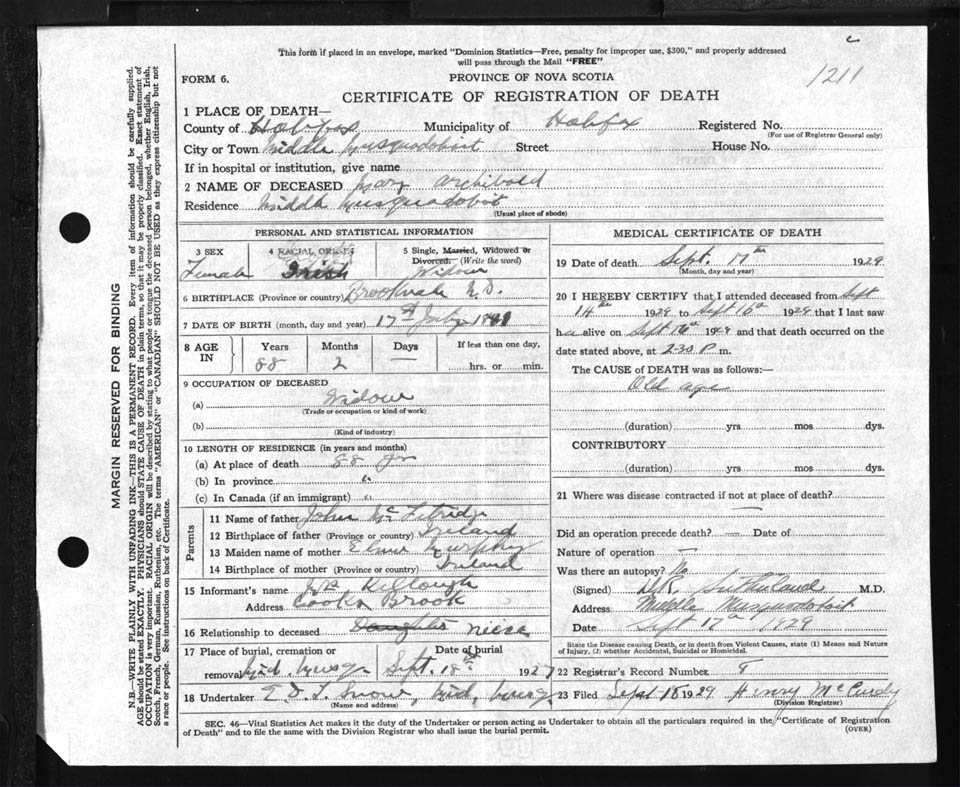 c
This form if placed in an envelope, marked "Dominion Statistics—Free, penalty for improper use, $300," and properly addressed
will pass through the Mail "FREE"
1211
FORM 6.
PROVINCE OF NOVA SCOTIA
CERTIFICATE OF REGISTRATION OF DEATH
MARGIN RESERVED FOR BINDING
N.B.—WRITE PLAINLY WITH UNFADING INK—THIS IS A PERMANENT RECORD. Every item of information should be carefully supplied.
AGE should be stated EXACTLY. PHYSICIANS should STATE CAUSE OF DEATH in plain terms, so that it may be properly classified. Exact statement of
OCCUPATION is very important. RACIAL ORIGIN will be described by stating to what people or tongue the deceased person belonged, whether English, Irish,
Scotch, French, German, Russian, Ruthenian, etc. The terms "AMERICAN" or "CANADIAN" SHOULD NOT BE USED as they express citizenship but not
a race or people. See instructions on back of Certificate.
1 PLACE OF DEATH—
County of Halifax Municipality of Halifax Registered No.
(For use of Registrar General only)
City or Town Middle Musquodoboit Street House No.
If in hospital or institution, give name
2 NAME OF DECEASED Mary Archibald
Residence Middle Musquodoboit
(Usual place of abode)
PERSONAL AND STATISTICAL INFORMATION
3 SEX 4 RACIAL ORIGIN 5 Single, Married, Widowed or
Divorced. (Write the word)
Female Irish Widow
6 BIRTHPLACE (Province or country) Brookvale N.S.
7 DATE OF BIRTH (month, day and year) 17th July 1841
8 AGE IN Years Months Days If less than one day,
88 2 — hrs. or min.
9 OCCUPATION OF DECEASED
(a) Widow
(Trade or occupation or kind of work)
(b)
(Kind of industry)
10 LENGTH OF RESIDENCE (in years and months)
(a) At place of death 88 yr
(b) In province "
(c) In Canada (if an immigrant) "
Parents
11 Name of father John Mc
12 Birthplace of father (Province or country) Ireland
13 Maiden name of mother Murphy
14 Birthplace of mother (Province or country) Ireland
15 Informant's name Mrs Killough
Address Cooks Brook
16 Relationship to deceased Daughter neise
17 Place of burial, cremation or Date of burial
removal Mid. Musq. Sept. 18th 1929
18 Undertaker Snow, Mid, Musq.
(Name and address)
MEDICAL CERTIFICATE OF DEATH
19 Date of death Sept. 17th 1929
(Month, day and year)
20 I HEREBY CERTIFY that I attended deceased from Sept
14th 1929 to Sept 16th 1929 that I last saw
h alive on Sept 16th 1929 and that death occurred on the
date stated above, at 2-30 P m.
The CAUSE of DEATH was as follows:—
Old age
(duration) yrs mos dys.
CONTRIBUTORY
(duration) yrs mos dys.
21 Where was disease contracted if not at place of death?
Did an operation precede death? — Date of
Nature of operation —
Was there an autopsy? No
(Signed) Sutherland M.D.
Address Middle Musquodoboit
Date Sept 17th 1929
State the Disease causing Death, or in death from Violent Causes, state (1) Means and Nature
of Injury, (2) whether Accidental, Suicidal or Homicidal.
22 Registrar's Record Number 8
23 Filed Sept 18 1929 Henry McCurdy
(Division Registrar)
SEC. 46—Vital Statistics Act makes it the duty of the Undertaker or person acting as Undertaker to obtain all the particulars required in the "Certificate of Registration
of Death" and to file the same with the Division Registrar who shall issue the burial permit.
(OVER)